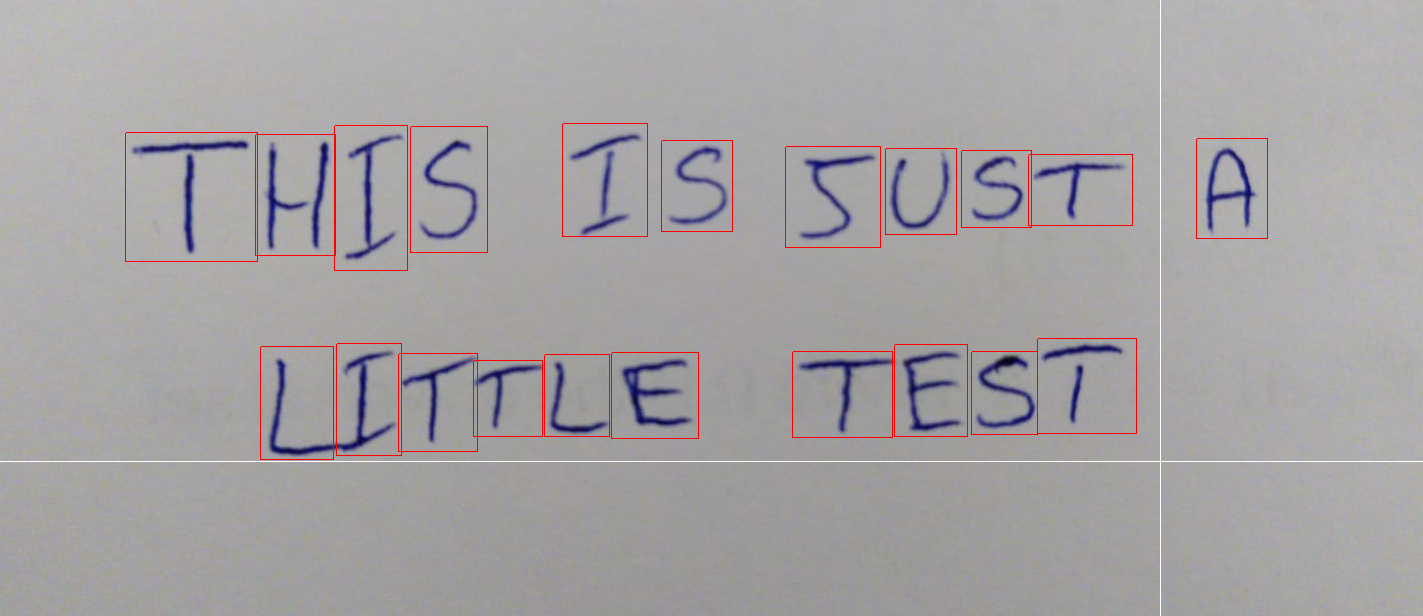 THIS IS JUST A
LITTLE TEST